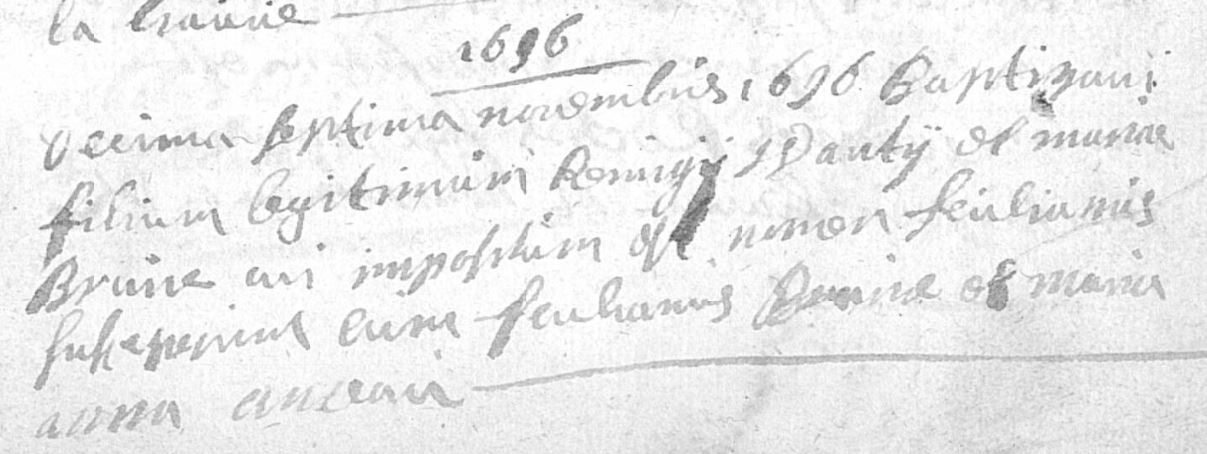 la
1696
Decima septima novembris 1696 Baptizavi
filium legitimum Remigij Wauty et mariae
Bruire cui impositum est nomen feulianus
susceperunt eum feulianus Bruire et maria
anna